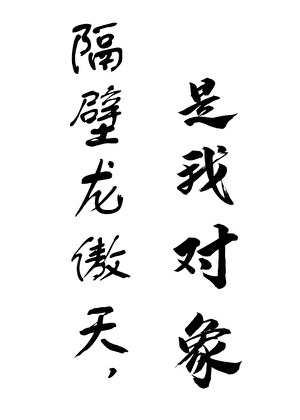 隔壁龙傲天，
是我对象